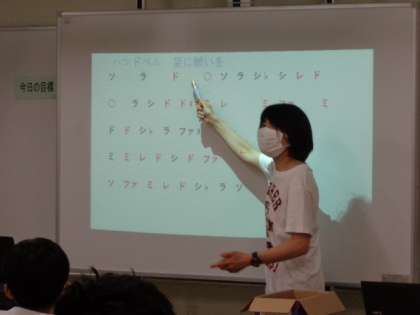 今日の目標
ハンドベル 星に願いを
ソ ラ ド ○ ソ ラ シ♭ シ レ ド
○ ラ シ ド ド レ ミ ミ
ド ド シ♭ ラ ファ
ミ ミ レ ド シ ド ファ
ソ ファ ミ レ ド シ♭ ラ ソ